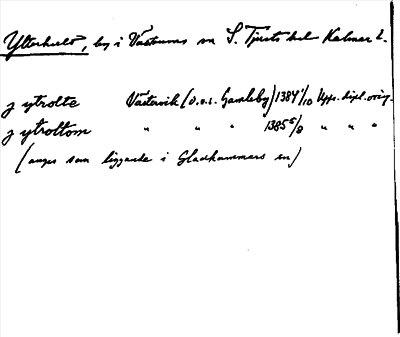 Ytterhult, by i Västrums sn S. Tjusts hd Kalmar l.
j ytrolte Västervik (d.v.s. Gamleby) 1384 1/10 Upps. dipl. orig.
j ytroltom " " " 1385 5/9 " " "
(anges som liggande i Gladhammars sn)